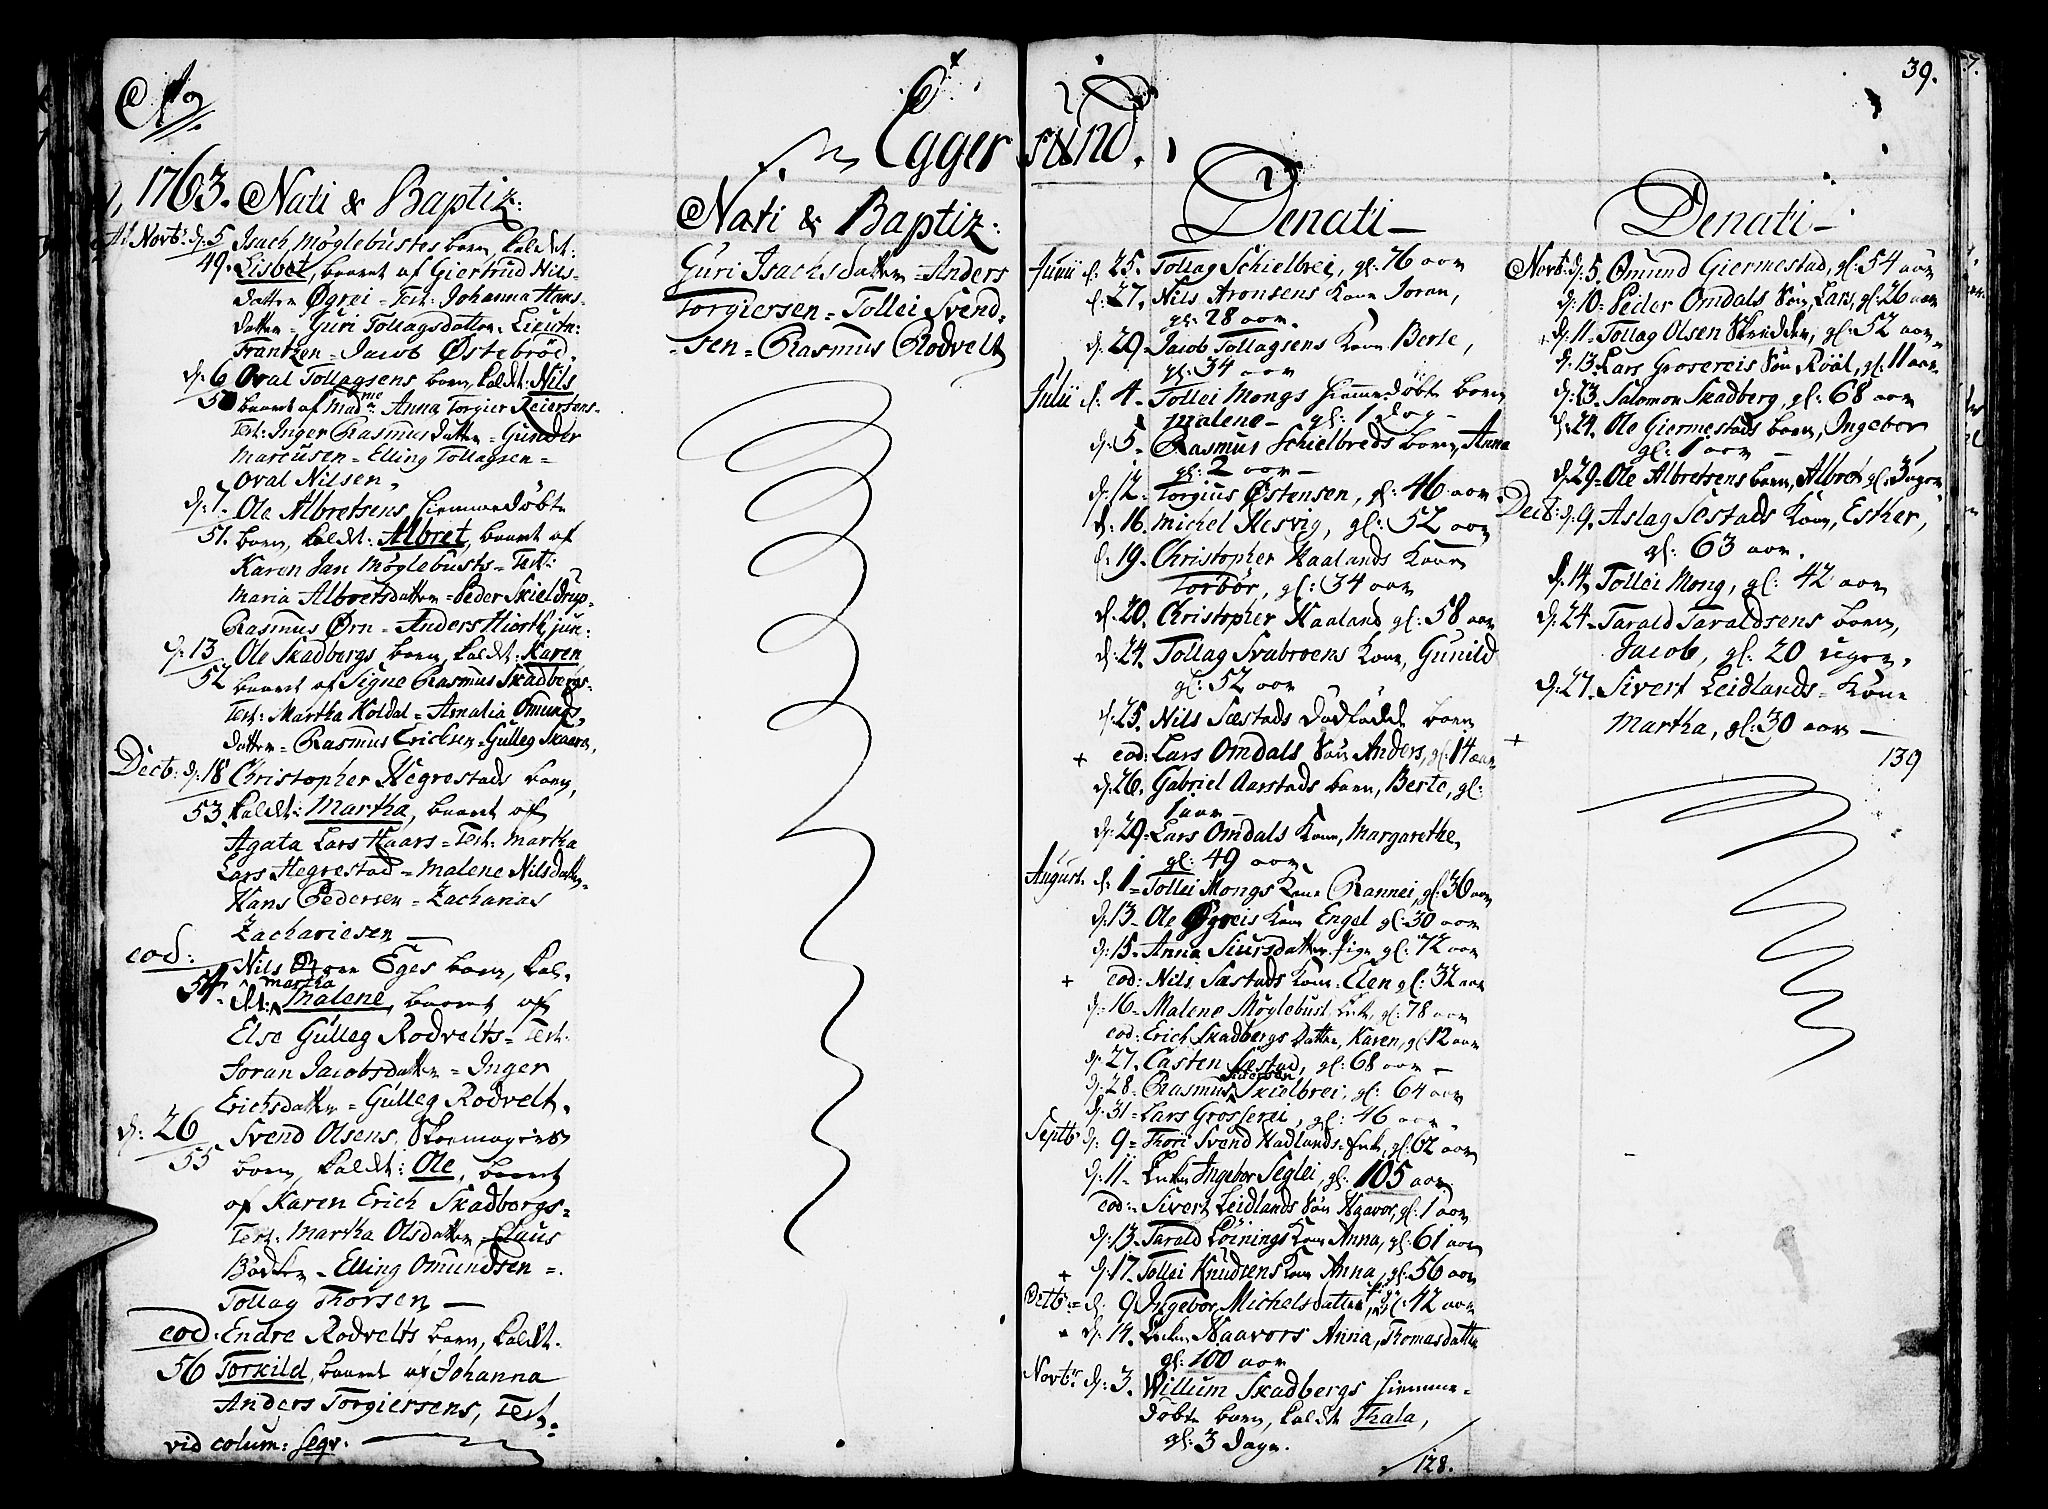 Aº
39.
Eggersund.
1763. Nati & Baptiz:
Novb: d: 5 Isach Möglebustes barn, kaldt:
49. Lisbet, baaret af Giertrud Nils-
datter Øgrei = Test: Johanna Hans-
datter = Guri Tollagsdatter = Lieutn:
Frantzen = Jacob Østebröd.
d: 6 Oval Tollagsens barn, kaldt: Nils
50 baaret af Madme Anna Torgier Reiersens-
Test: Inger Rasmusdatter = Gunder
Marcusen = Elling Tollagsen =
Oval Nilsen,
d: 7. Ole Albretsens hiemmedøbte
51. barn, kaldt: Albret, baaret af
Karen Jan Möglebusts = Test:
Maria Albretsdatter = Peder Skieldrup =
Rasmus Ørn = Anders Hiorth jun:
d: 13 Ole Skadbergs barn, kaldt: Karen
52 baaret af Signe Rasmus Skadbergs =
Test: Martha Holdal = Amalia Omunds-
datter = Rasmus Ericksen = Gulleg Skaara,
Decb: d: 18 Christopher Hegrestads barn,
53. kaldt: Martha, baaret af
Agata Lars Haars = Test: Martha
Lars Hegrestad = Malene Nilsdatter,
Hans Pedersen = Zacharias
Zachariesen —
eod: Nils Eges barn, kal-
martha
54. dt: Malene, baaret af
Else Gulleg Rodvelts = Test:
Joran Jacobsdatter = Inger
Erichsdatter = Gulleg Rodvelt.
d: 26 Svend Olsens Skoemagers
55 barn, kaldt: Ole, baaret
af Karen Erich Skadbergs =
Test: Martha Olsdatter, Claus
Bödker = Elling Omundsen =
Tollag Thorsen —
eod: Endre Rodvelts barn, kaldt.
56 Torkild, baaret af Johanna
Anders Torgiersens, Test:
vid colum: seqv.
Nati & Baptiz:
Guri Isachsdatter = Anders
Torgiersen = Tollei Svend-
sen = Rasmus Rodvelt
Denati —
Junii d: 25. Tollag Schielbrei, gl: 76 aar
d: 27. Nils Aronsens kone Joran,
gl: 28 aar.
d: 29. Jacob Tollagsens kone Berte,
gl: 34 aar
Julii d: 4. Tollei Mongs hiemmedöbte barn
Malene — gl: 1 dag —
d: 5. Rasmus Schielbreds barn, Anna
gl: 2 aar —
d: 12. Torgius Østensen, gl: 46 aar.
d: 16. Michel Hesvig, gl: 52 aar
d: 19. Christopher Haalands kone
Torbör, gl: 34 aar
d: 20. Christopher Haaland gl: 58 aar
d: 24. Tollag Svabroens kone, Gunild
gl: 52 aar
d: 25. Nils Sæstads dödfødt barn
+ eod: Lars Omdals Sön Anders, gl: 14 aar
d: 26. Gabriel Aarstads barn, Berte, gl:
1 aar —
d: 29. Lars Omdals kone, Margarethe,
gl: 49 aar.
August. d. 1 = Tollei Mongs kone Rannei, gl: 36 aar
d: 13. Ole Øgreis kone Engel gl: 30 aar
d: 15. Anna Siursdatter pige gl: 72 aar
+ eod: Nils Sæstads kone Elen gl: 32 aar
d: 16. Malene Möglebust, Enke, gl: 78 aar
eod: Erich Skadbergs datter, Karen, gl: 12 aar
d: 27. Casten Sæstad, gl: 68 aar —
d: 28. Rasmus Skielbrei, gl: 64 aar
d: 31 = Lars Grosserei, gl: 46 aar
Septb: d: 9 = Thori Svend Hadlands Enke, gl: 62 aar
d: 11. Enken Ingebor Seglei, gl: 105 aar
eod: Sivert Leidlands Sön Haavor, gl: 1 aar
d: 13. Tarald Löinings kone Anna, gl: 61 aar
+ d: 17. Tollei Knudsens kone Anna, gl: 56 aar
Octb: d: 9 Ingebor Michelsdatter, gl: 42 aar
d: 14. Enken Haavors Anna, Thomasdatter
gl: 100 aar
Novb: d: 3. Willum Skadbergs hiemme-
döbte barn, kaldt Thala,
gl: 3 dage.
128.
Denati —
Novb: d: 5. Omund Giermestad, gl: 54 aar
d: 10. Peder Omdals Sön, Lars, gl: 26 aar
d: 11. Tollag Olsen Skredder, gl: 52 aar
d: 13. Lars Grosereis Sön Roal, gl: 11 aar
d: 13. Salomon Skadberg, gl: 68 aar
d: 24. Ole Giermestads barn, Ingebor
gl: 1 aar —
d: 29. Ole Albretsens barn, Albret gl: 3 uger
Decb: d: 9. Aslag Sæstads kone, Esther,
gl: 63 aar.
d: 14. Tollei Mong, gl: 42 aar
d: 24. Tarald Taraldsens barn,
Jacob, gl: 20 uger.
d: 27. Sivert Leidlands kone
+ Martha, gl: 30 aar —
139